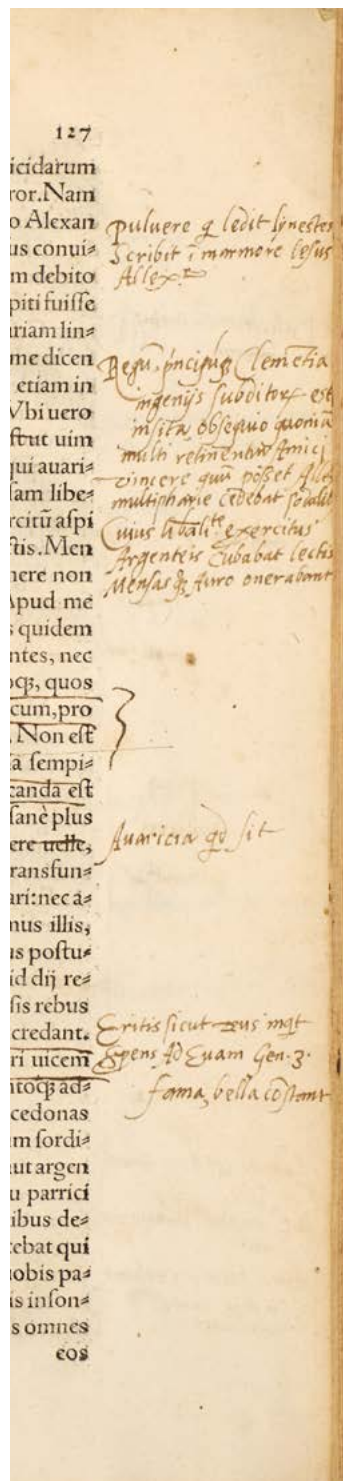 127
icidarum
ror. Nam
o Alexan
us conui⸗
m debito
piti fuiſſe
ariam lin⸗
me dicen
etiam in
Vbi uero
ſtrut uim
qui auari⸗
ſam libe⸗
rcitũ aſpi
ſtis. Men
nere non
Apud me
s quidem
ntes, nec
oq;, quos
cum, pro
. Non eſt
ã ſempi⸗
canda eſt
ſanè plus
ere uelle,
ransfun⸗
ari: nec a⸗
nus illis,
us poſtu⸗
id dij re⸗
ſis rebus
credant.
ri uicem
ntoq; ad⸗
cedonas
m ſordi⸗
aut argen
u parrici
ibus de⸗
ebat qui
nobis pa⸗
is inſon⸗
s omnes
eos
pulvere q ledit lyncestes
Scribit ĩ marmore lesus
Allex.
Regũ, principũq; Clemẽtia
ingenijs subditorẽ est
insita, obsequio quoniã
multi retinentur Amici
vincere quũ posset
multipharie cedebat
Cuius libalite exercitus
Argenteis Cubabat lectis
Mensas q; Auro onerabant
Avaricia qd sit
Eritis sicut Deus inqt
Spens Ad Evam Gen. 3.
Fama, bella cõstant